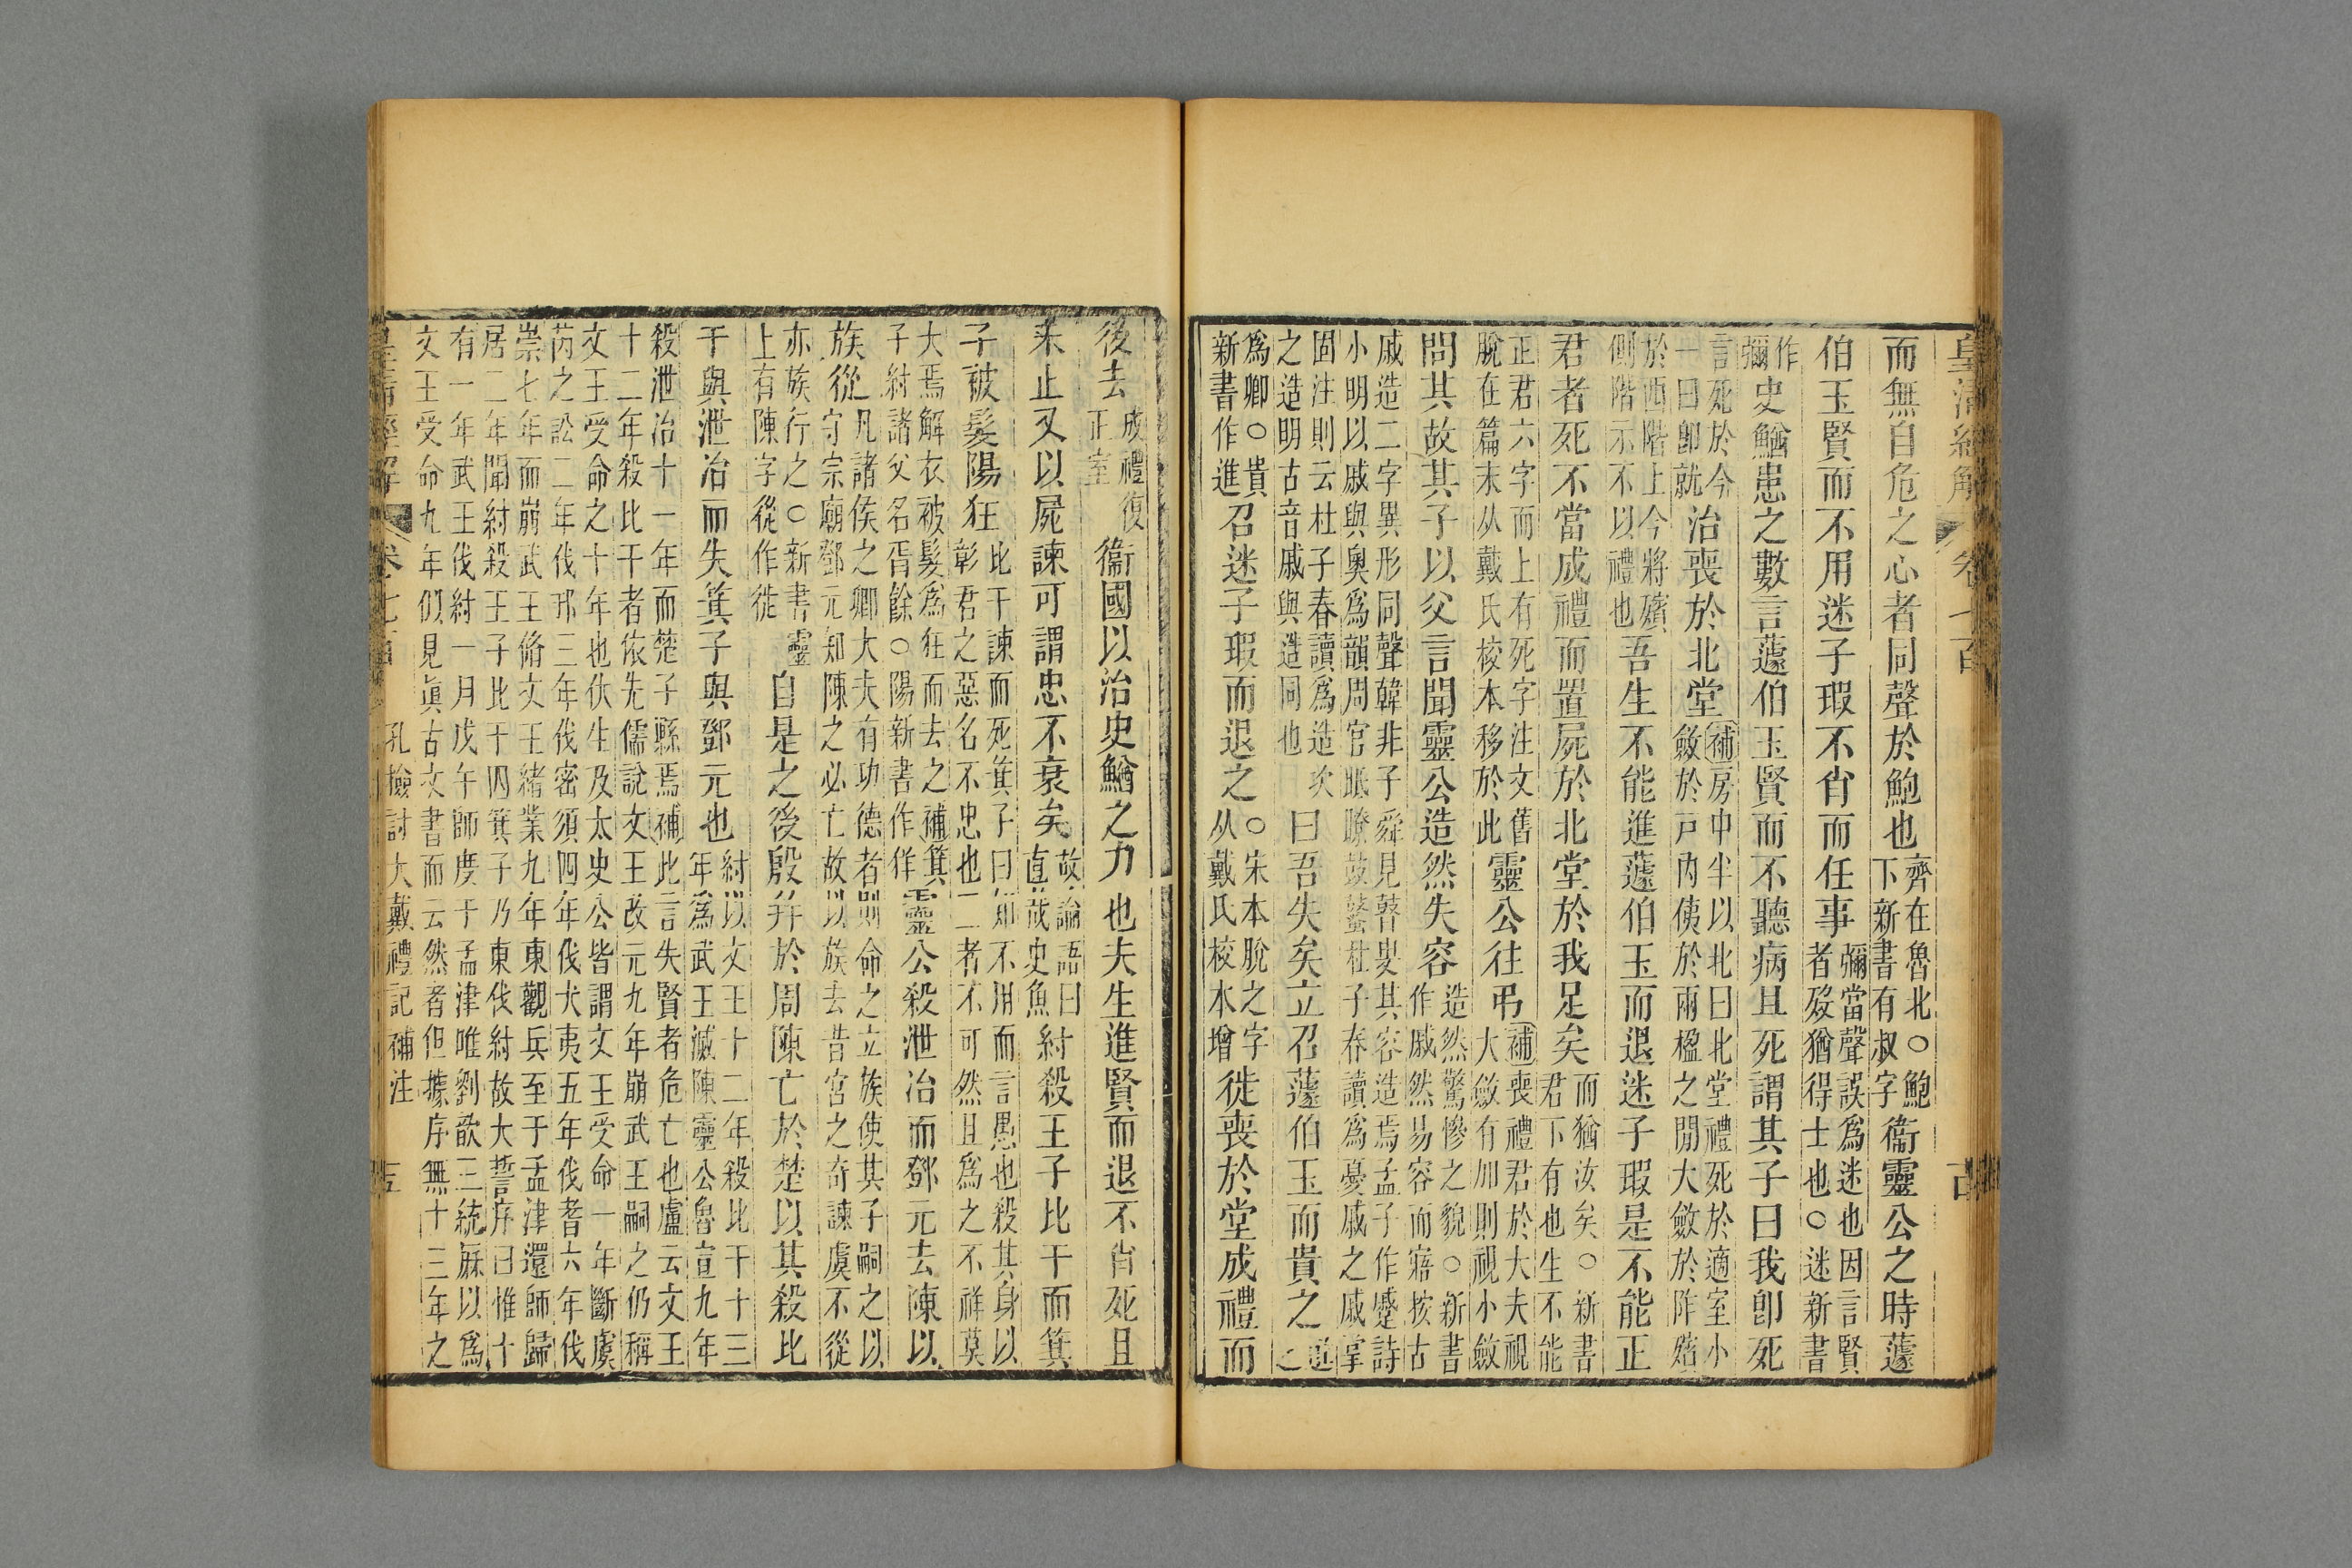 皇清經解 卷七百 十四
而無自危之心者同聲於鮑也
齊在魯北○鮑
下新書有叔字
衞靈公之時蘧
伯玉賢而不用迷子瑕不肖而任事
彌當聲誤爲迷也因言賢
者殁猶得士也○迷新書
作
彌
史鰌患之數言蘧伯玉賢而不聽病且死謂其子曰我卽死
言死於今
一曰卽就
治喪於北堂
補房中半以北曰北堂禮死於適室小
斂於戸內俠於兩楹之閒大斂於阼階
於西階上今將殯
側階示不以禮也
吾生不能進蘧伯玉而退迷子瑕是不能正
君者死不當成禮而置屍於北堂於我足矣
而猶汝矣○新書
君下有也生不能
正君六字而上有死字注文舊
脫在篇末从戴氏校本移於此
靈公往弔
補喪禮君於大夫視
大斂有加則視小斂
問其故其子以父言聞靈公造然失容
造然驚慘之貌○新書
作戚然易容而寤按古
戚造二字異形同聲韓非子舜見瞽叟其容造焉孟子作蹙詩
小明以戚與奧爲韻周官眡瞭鼓鼜杜子春讀爲憂戚之戚掌
固注則云杜子春讀爲造次
之造明古音戚與造同也
曰吾失矣立召蘧伯玉而貴之
進
之
爲卿○貴
新書作進
召迷子瑕而退之
○朱本脫之字
从戴氏校本增
徙喪於堂成禮而
後去
成禮復
正室
衞國以治史鰌之力也夫生進賢而退不肖死且
未止又以屍諫可謂忠不衰矣
故論語曰
直哉史魚
紂殺王子比干而箕
子被髮陽狂
比干諫而死箕子曰知不用而言愚也殺其身以
彰君之惡名不忠也二者不可然且爲之不祥莫
大焉解衣被髮爲狂而去之補箕
子紂諸父名胥餘○陽新書作佯
靈公殺泄冶而鄧元去陳以
族從
凡諸侯之卿大夫有功德者則命之立族使其子嗣之以
守宗廟鄧元知陳之必亡故以族去昔宮之奇諫虞不從
亦族行之○新書靈
上有陳字從作徙
自是之後殷并於周陳亡於楚以其殺比
干與泄冶而失箕子與鄧元也
紂以文王十二年殺比干十三
年爲武王滅陳靈公魯宣九年
殺泄冶十一年而楚子縣焉補此言失賢者危亡也盧云文王
十二年殺比干者依先儒說文王改元九年崩武王嗣之仍稱
文王受命之十年也伏生及太史公皆謂文王受命一年斷虞
芮之訟二年伐邘三年伐密須四年伐犬夷五年伐耆六年伐
崇七年而崩武王脩文王緒業九年東觀兵至于孟津還師歸
居二年聞紂殺王子比干囚箕子乃東伐紂故大誓序曰惟十
有一年武王伐紂一月戊午師度于孟津唯劉歆三統厤以爲
文王受命九年似見眞古文書而云然者但據序無十三年之
皇清經解 卷七百 孔檢討大戴禮記補注 十五